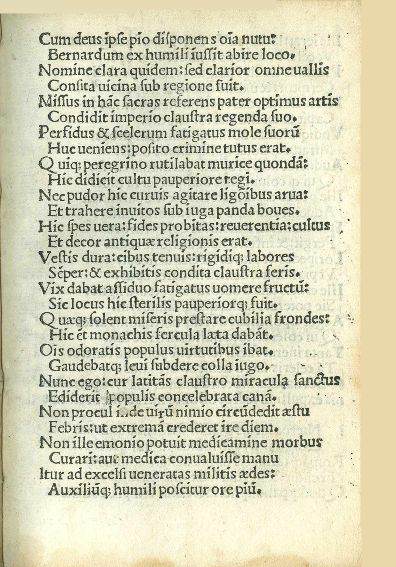 Cum deus ipse pio disponens oĩa nutu:
Bernardum ex humili iussit abire loco.
Nomine clara quidem: sed clarior omine uallis
Consita uicina sub regione fuit.
Missus in hãc sacras referens pater optimus artis
Condidit imperio claustra regenda suo.
Perfidus & scelerum fatigatus mole suorũ
Huc ueniens: posito crimine tutus erat.
Quiq; peregrino rutilabat murice quondã:
Hic didicit cultu pauperiore tegi.
Nec pudor hic curuis agitare ligõibus arua:
Et trahere inuitos sub iuga panda boues.
Hic spes uera: fides probitas: reuerentia: cultus
Et decor antiquæ religionis erat.
Vestis dura: cibus tenuis: rigidiq; labores
Sẽper: & exhibitis condita claustra feris.
Vix dabat assiduo fatigatus uomere fructũ:
Sic locus hic sterilis pauperiorq; fuit.
Quæq; solent miseris prestare cubilia frondes:
Hic et̃ monachis fercula læta dabãt.
Oĩs odoratis populus uirtutibus ibat.
Gaudebatq; leui subdere colla iugo.
Nunc ego: cur latitãs claustro miracula sanctus
Ediderit populis concelebrata canã.
Non procul de uirũ nimio circũdedit æstu
Febris: ut extremã crederet ire diem.
Non ille emonio potuit medicamine morbus
Curari: aut medica conualuisse manu
Itur ad excelsi ueneratas militis ædes:
Auxiliũq; humili poscitur ore piũ.